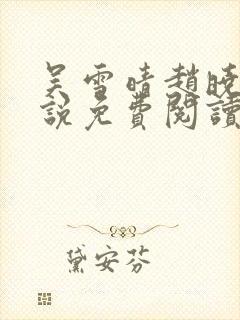 吴雪晴趙曉
說免費閱讀
黛安芬